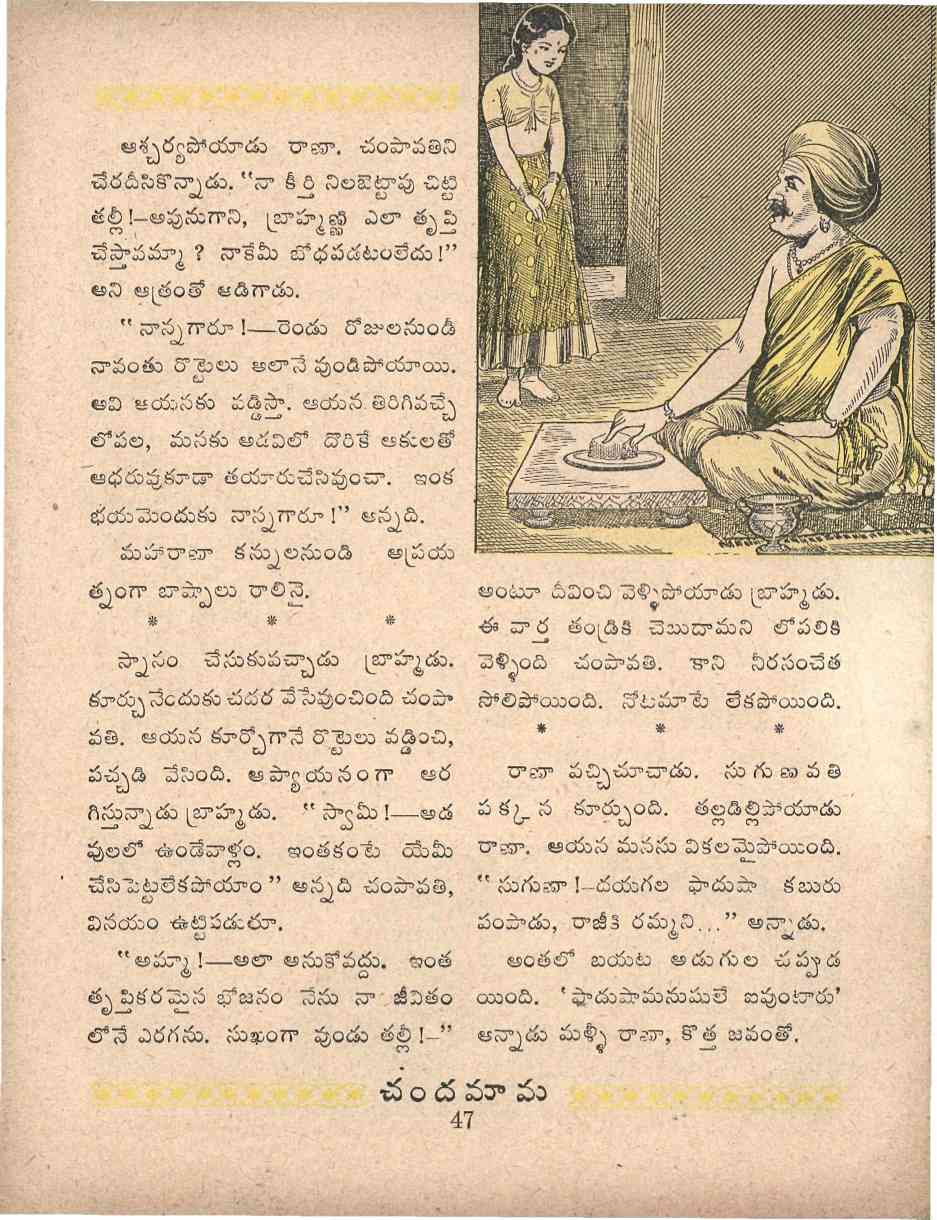 ఆశ్చర్యపోయాడు రాణా. చంపావతిని
చేరదీసికొన్నాడు. “నా కీర్తి నిలబెట్టావు చిట్టి
తల్లీ!—అవునుగాని, బ్రాహ్మణ్ణి ఎలా తృప్తి
చేస్తావమ్మా? నాకేమీ బోధపడటంలేదు!”
అని ఆత్రంతో అడిగాడు.
“నాన్నగారూ!—రెండు రోజులనుండీ
నావంతు రొట్టెలు అలానే వుండిపోయాయి.
అవి ఆయనకు వడ్డిస్తా. ఆయన తిరిగివచ్చే
లోపల, మనకు అడవిలో దొరికే ఆకులతో
ఆధరువుకూడా తయారుచేసివుంచా. ఇంక
భయమెందుకు నాన్నగారూ!” అన్నది.
మహారాణా కన్నులనుండి అప్రయ
త్నంగా బాష్పాలు రాలినై.
* * *
స్నానం చేసుకువచ్చాడు బ్రాహ్మడు.
కూర్చునేందుకు చదర వేసేవుంచింది చంపా
వతి. ఆయన కూర్చోగానే రొట్టెలు వడ్డించి,
పచ్చడి వేసింది. ఆప్యాయనంగా ఆర
గిస్తున్నాడు బ్రాహ్మడు. “స్వామీ!—అడ
వులలో ఉండేవాళ్లం. ఇంతకంటే యేమీ
చేసిపెట్టలేకపోయాం” అన్నది చంపావతి,
వినయం ఉట్టిపడుతూ.
“అమ్మా!—అలా అనుకోవద్దు. ఇంత
తృప్తికరమైన భోజనం నేను నా జీవితం
లోనే ఎరగను. సుఖంగా వుండు తల్లీ!—”
అంటూ దీవించి వెళ్ళిపోయాడు బ్రాహ్మడు.
ఈ వార్త తండ్రికి చెబుదామని లోపలికి
వెళ్ళింది చంపావతి. కాని నీరసంచేత
సోలిపోయింది. నోటమాటే లేకపోయింది.
* * *
రాణా వచ్చిచూచాడు. సుగుణవతి
పక్కన కూర్చుంది. తల్లడిల్లిపోయాడు
రాణా. ఆయన మనసు వికలమైపోయింది.
“సుగుణా!—దయగల ఫాదుషా కబురు
పంపాడు, రాజీకి రమ్మని...” అన్నాడు.
అంతలో బయట అడుగుల చప్పుడ
యింది. ‘ఫాదుషామనుషులే ఐవుంటారు’
అన్నాడు మళ్ళీ రాణా, కొత్త జవంతో.
చందమామ
47